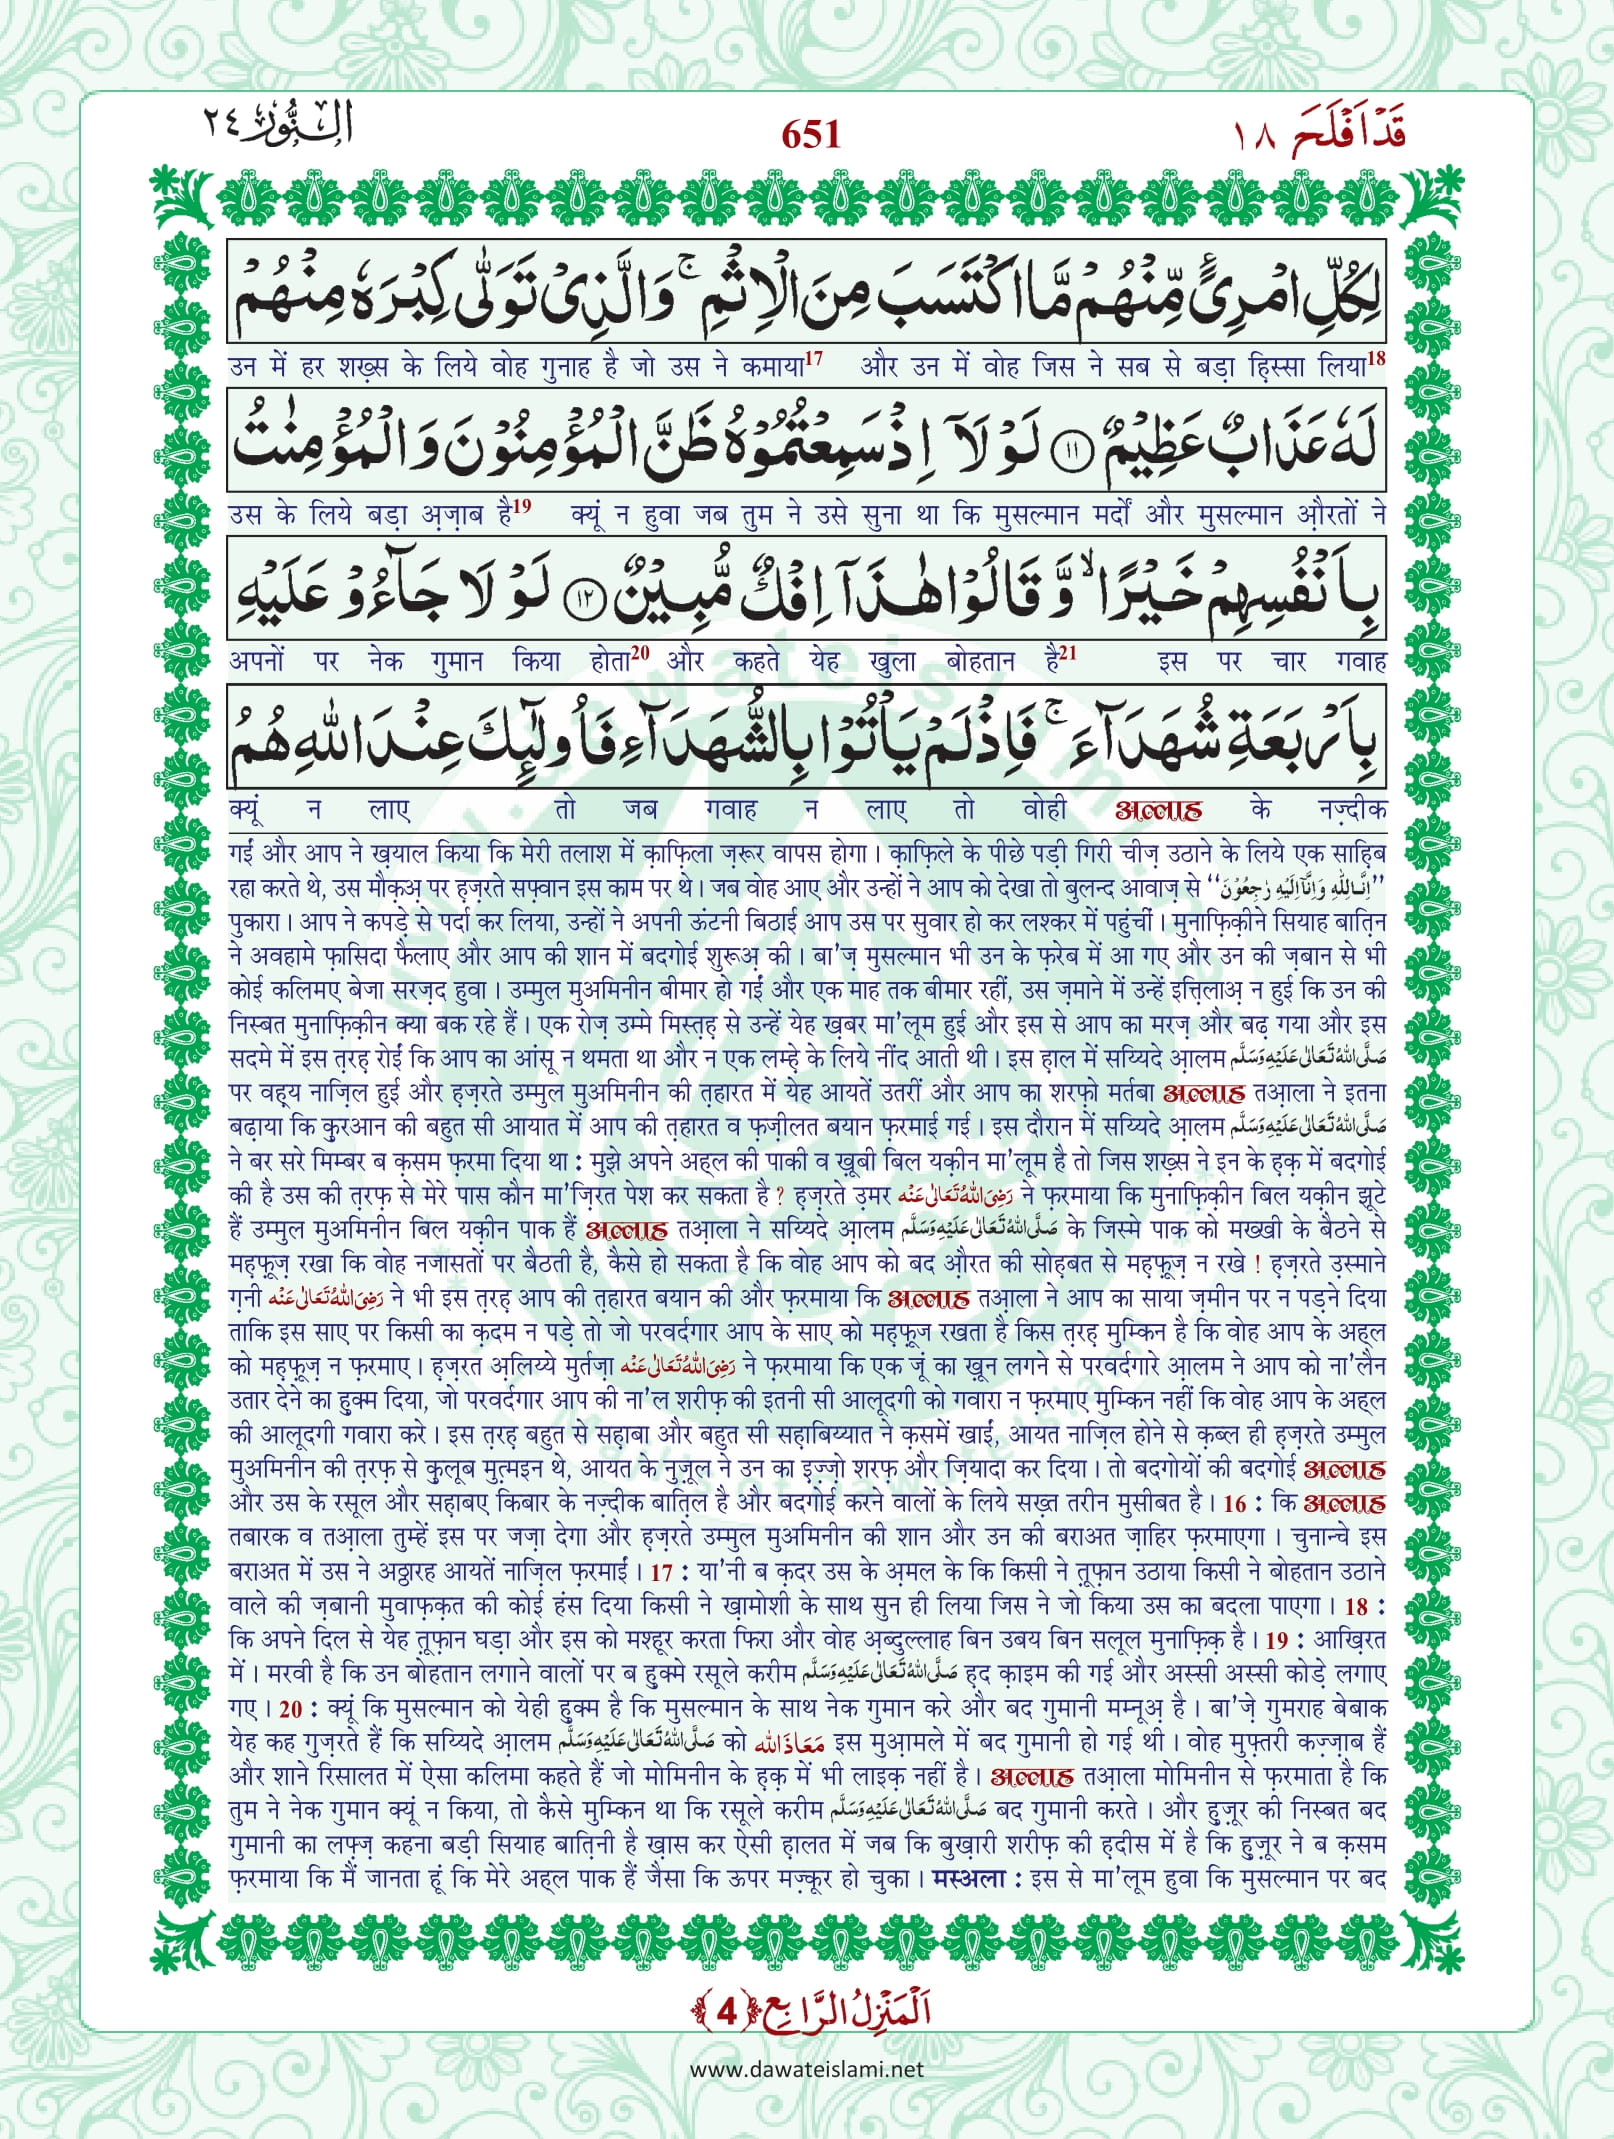 قَدْ اَفْلَحَ ١٨
651
اَلنُّوْر ٢٤
لِكُلِّ امْرِئٍ مِّنْهُمْ مَّا اكْتَسَبَ مِنَ الْاِثْمِ ۚ وَالَّذِیْ تَوَلّٰى كِبْرَهٗ مِنْهُمْ
उन में हर शख़्स के लिये वोह गुनाह है जो उस ने कमाया17 और उन में वोह जिस ने सब से बड़ा हिस्सा लिया18
لَهٗ عَذَابٌ عَظِیْمٌ ﴿١١﴾ لَوْ لَاۤ اِذْ سَمِعْتُمُوْهُ ظَنَّ الْمُؤْمِنُوْنَ وَ الْمُؤْمِنٰتُ
उस के लिये बड़ा अ़ज़ाब है19 क्यूं न हुवा जब तुम ने उसे सुना था कि मुसल्मान मर्दों और मुसल्मान औ़रतों ने
بِاَنْفُسِهِمْ خَیْرًا ۙ وَّ قَالُوْا هٰذَاۤ اِفْكٌ مُّبِیْنٌ ﴿١٢﴾ لَوْ لَا جَآءُوْ عَلَیْهِ
अपनों पर नेक गुमान किया होता20 और कहते येह खुला बोहतान है21 इस पर चार गवाह
بِاَرْبَعَةِ شُهَدَآءَ ۚ فَاِذْ لَمْ یَاْتُوْا بِالشُّهَدَآءِ فَاُولٰٓىِٕكَ عِنْدَ اللّٰهِ هُمُ
क्यूं न लाए तो जब गवाह न लाए तो वोही अल्लाह के नज़्दीक
गईं और आप ने ख़याल किया कि मेरी तलाश में क़ाफ़िला ज़रूर वापस होगा। क़ाफ़िले के पीछे पड़ी गिरी चीज़ उठाने के लिये एक साहिब
रहा करते थे, उस मौक़अ़ पर ह़ज़रते सफ़्वान इस काम पर थे। जब वोह आए और उन्हों ने आप को देखा तो बुलन्द आवाज़ से ‘‘اِنَّا لِلّٰهِ وَاِنَّاۤ اِلَيْهِ رٰجِعُوْنَ’’
पुकारा। आप ने कपड़े से पर्दा कर लिया, उन्हों ने अपनी ऊंटनी बिठाई आप उस पर सुवार हो कर लश्कर में पहुंचीं। मुनाफ़िक़ीने सियाह बात़िन
ने अवहामे फ़ासिदा फैलाए और आप की शान में बदगोई शुरूअ़ की। बा'ज़ मुसल्मान भी उन के फ़रेब में आ गए और उन की ज़बान से भी
कोई कलिमए बेजा सरज़द हुवा। उम्मुल मुअमिनीन बीमार हो गईं और एक माह तक बीमार रहीं, उस ज़माने में उन्हें इत्तिलाअ़ न हुई कि उन की
निस्बत मुनाफ़िक़ीन क्या बक रहे हैं। एक रोज़ उम्मे मिस्त़ह़ से उन्हें येह ख़बर मा'लूम हुई और इस से आप का मरज़ और बढ़ गया और इस
सदमे में इस त़रह़ रोईं कि आप का आंसू न थमता था और न एक लम्हे के लिये नींद आती थी। इस ह़ाल में सय्यिदे आ़लम صَلَّى اللهُ تَعَالٰى عَلَيْهِ وَسَلَّم
पर वह़्य नाज़िल हुई और ह़ज़रते उम्मुल मुअमिनीन की त़हारत में येह आयतें उतरीं और आप का शरफ़ो मर्तबा अल्लाह तआ़ला ने इतना
बढ़ाया कि कुरआन की बहुत सी आयात में आप की त़हारत व फ़ज़ीलत बयान फ़रमाई गई। इस दौरान में सय्यिदे आ़लम صَلَّى اللهُ تَعَالٰى عَلَيْهِ وَسَلَّم
ने बर सरे मिम्बर ब क़सम फ़रमा दिया था : मुझे अपने अह्ल की पाकी व ख़ूबी बिल यक़ीन मा'लूम है तो जिस शख़्स ने इन के ह़क़ में बदगोई
की है उस की त़रफ़ से मेरे पास कौन मा'ज़िरत पेश कर सकता है ? ह़ज़रते उ़मर رَضِىَ اللهُ تَعَالٰى عَنْه ने फ़रमाया कि मुनाफ़िक़ीन बिल यक़ीन झूटे
हैं उम्मुल मुअमिनीन बिल यक़ीन पाक हैं अल्लाह तआ़ला ने सय्यिदे आ़लम صَلَّى اللهُ تَعَالٰى عَلَيْهِ وَسَلَّم के जिस्मे पाक को मख्खी के बैठने से
मह़फ़ूज़ रखा कि वोह नजासतों पर बैठती है, कैसे हो सकता है कि वोह आप को बद औ़रत की सोह़बत से मह़फ़ूज़ न रखे ! ह़ज़रते उ़स्माने
ग़नी رَضِىَ اللهُ تَعَالٰى عَنْه ने भी इस त़रह़ आप की त़हारत बयान की और फ़रमाया कि अल्लाह तआ़ला ने आप का साया ज़मीन पर न पड़ने दिया
ताकि इस साए पर किसी का क़दम न पड़े तो जो परवर्दगार आप के साए को मह़फ़ूज़ रखता है किस त़रह़ मुम्किन है कि वोह आप के अह्ल
को मह़फ़ूज़ न फ़रमाए। ह़ज़रत अ़लिय्ये मुर्तज़ा رَضِىَ اللهُ تَعَالٰى عَنْه ने फ़रमाया कि एक जूं का ख़ून लगने से परवर्दगारे आ़लम ने आप को ना'लैन
उतार देने का हुक्म दिया, जो परवर्दगार आप की ना'ल शरीफ़ की इतनी सी आलूदगी को गवारा न फ़रमाए मुम्किन नहीं कि वोह आप के अह्ल
की आलूदगी गवारा करे। इस त़रह़ बहुत से सह़ाबा और बहुत सी सह़ाबिय्यात ने क़समें खाईं, आयत नाज़िल होने से क़ब्ल ही ह़ज़रते उम्मुल
मुअमिनीन की त़रफ़ से कुलूब मुत़्मइन थे, आयत के नुज़ूल ने उन का इज़्ज़ो शरफ़ और ज़ियादा कर दिया। तो बदगोयों की बदगोई अल्लाह
और उस के रसूल और सह़ाबए किबार के नज़्दीक बात़िल है और बदगोई करने वालों के लिये सख़्त तरीन मुसीबत है। 16 : कि अल्लाह
तबारक व तआ़ला तुम्हें इस पर जज़ा देगा और ह़ज़रते उम्मुल मुअमिनीन की शान और उन की बराअत ज़ाहिर फ़रमाएगा। चुनान्चे इस
बराअत में उस ने अठ्ठारह आयतें नाज़िल फ़रमाईं। 17 : या'नी ब क़दर उस के अ़मल के कि किसी ने तूफ़ान उठाया किसी ने बोहतान उठाने
वाले की ज़बानी मुवाफ़क़त की कोई हंस दिया किसी ने ख़ामोशी के साथ सुन ही लिया जिस ने जो किया उस का बदला पाएगा। 18 :
कि अपने दिल से येह त़ूफ़ान घड़ा और इस को मश्हूर करता फिरा और वोह अ़ब्दुल्लाह बिन उबय बिन सलूल मुनाफ़िक़ है। 19 : आख़िरत
में। मरवी है कि उन बोहतान लगाने वालों पर ब हुक्मे रसूले करीम صَلَّى اللهُ تَعَالٰى عَلَيْهِ وَسَلَّم ह़द क़ाइम की गई और अस्सी अस्सी कोड़े लगाए
गए। 20 : क्यूं कि मुसल्मान को येही हुक्म है कि मुसल्मान के साथ नेक गुमान करे और बद गुमानी मम्नूअ़ है। बा'ज़े गुमराह बेबाक
येह कह गुज़रते हैं कि सय्यिदे आ़लम صَلَّى اللهُ تَعَالٰى عَلَيْهِ وَسَلَّم को مَعَاذَ الله इस मुआ़मले में बद गुमानी हो गई थी। वोह मुफ़्तरी कज़्ज़ाब हैं
और शाने रिसालत में ऐसा कलिमा कहते हैं जो मोमिनीन के ह़क़ में भी लाइक़ नहीं है। अल्लाह तआ़ला मोमिनीन से फ़रमाता है कि
तुम ने नेक गुमान क्यूं न किया, तो कैसे मुम्किन था कि रसूले करीम صَلَّى اللهُ تَعَالٰى عَلَيْهِ وَسَلَّم बद गुमानी करते। और हुज़ूर की निस्बत बद
गुमानी का लफ़्ज़ कहना बड़ी सियाह बात़िनी है ख़ास कर ऐसी ह़ालत में जब कि बुख़ारी शरीफ़ की ह़दीस में है कि हुज़ूर ने ब क़सम
फ़रमाया कि मैं जानता हूं कि मेरे अह्ल पाक हैं जैसा कि ऊपर मज़्कूर हो चुका। मस्अला : इस से मा'लूम हुवा कि मुसल्मान पर बद
اَلْمَنْزِلُ الرَّابِع ﴿4﴾
www.dawateislami.net